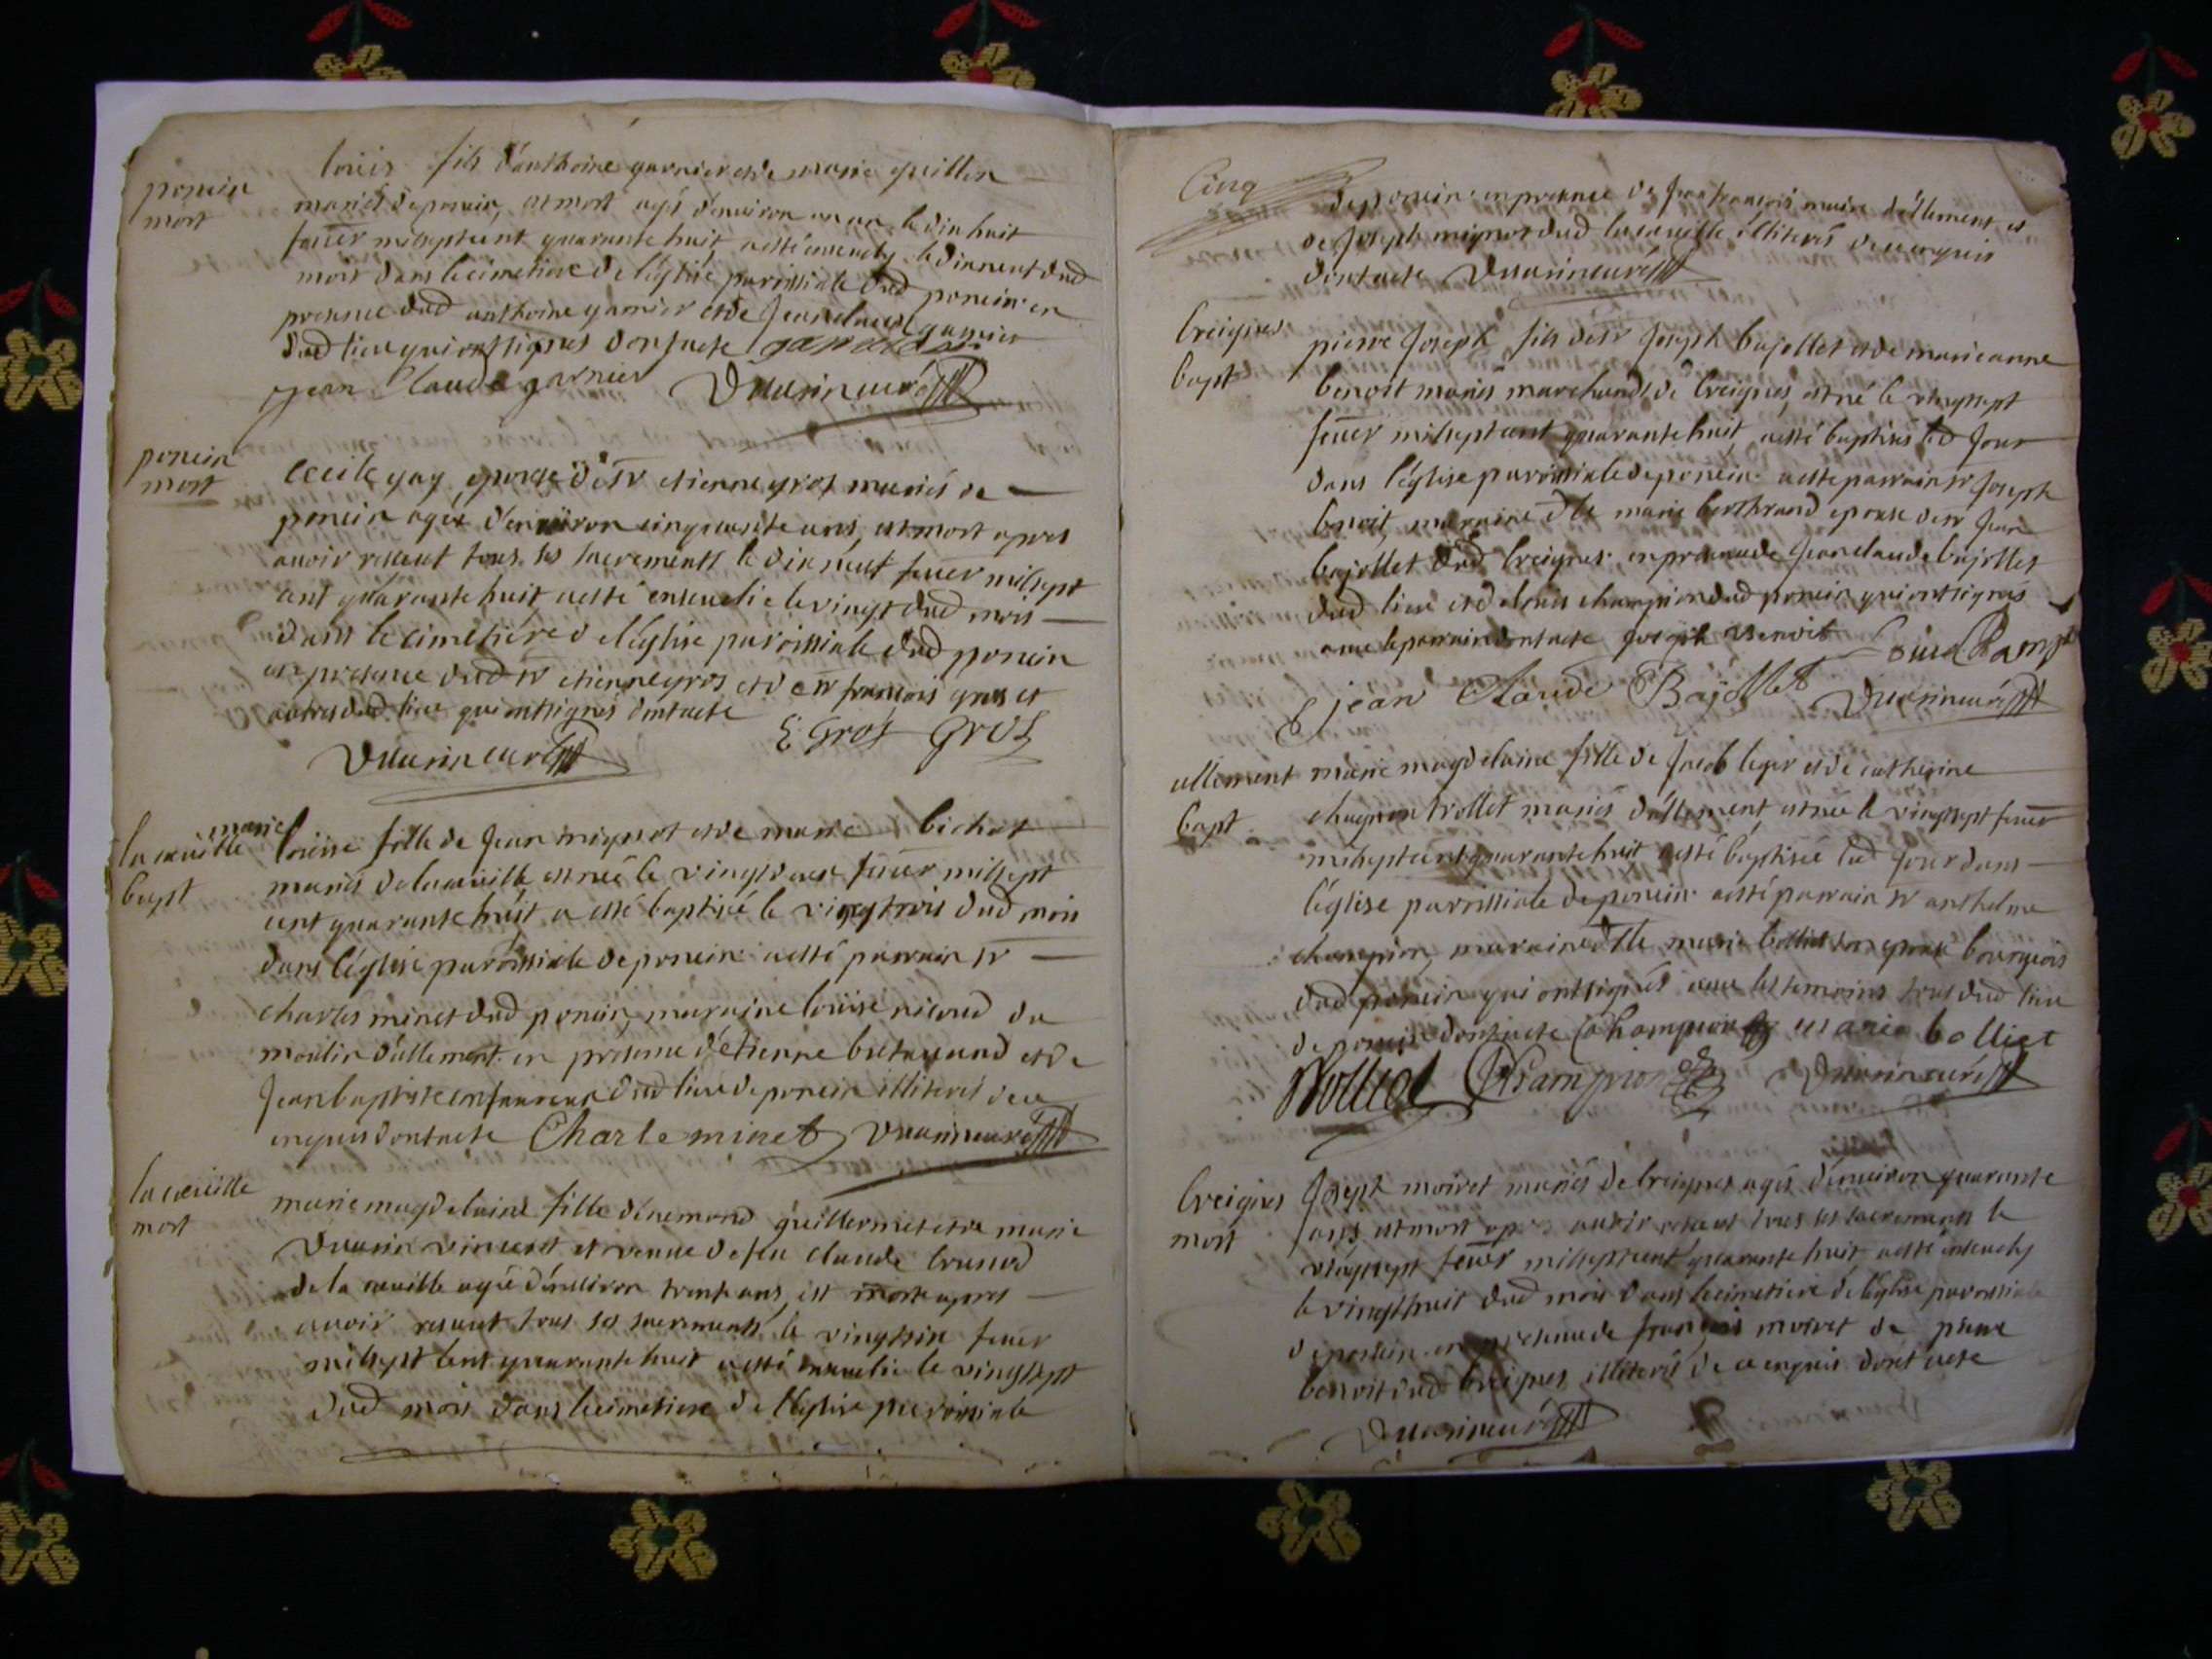 poncin
mort
louis fils d'anthoine garnier et de marie guillon
mariés de poncin, est mort agé d'environ un an le dix huit
fevier milsept cent quarante huit a esté ensevely le dixneuf dud
mois dans le cimetiere de l'église parroissiale dud poncin en
presence dud anthoine garnier et de Jean claude garnier
dud lieu qui ont signes dont acte
jean Claude garnier
poncin
mort
Cecile gay, epouse de sr etienne gros mariés de
poncin agée d'environ cinquante ans, est mort apres
avoir reseut tous ses sacrements le dixneuf fevier milsept
cent quarante huit a esté ensevelie le vingt dud mois
dans le cimetiére de l'église paroissiale dud poncin
en presence dud sr etienne gros et de sr françois gros et
autres dud lieu qui ont signes dont acte
E Gros Gros
la cueille
bapt
marie
louise fille de Jean mignot et de marie bichat
mariés de la cueille est née le vingt deux fevier milsept
cent quarante huit a esté baptisé le vingt trois dud mois
dans l'église paroissiale de poncin a esté parrain sr
charles minet dud poncin, maraine louise nicoud du
moulin d'allement en presence d'etienne et de
Jean baptiste dud lieu de poncin illiterés de ce
enquis dont acte Charle minet
la cueille
mort
marie magdelaine fille d'enemond guillermet et de marie
vincent et veuve de feu claude brunod
de la cueille agée d'environ trente ans, est morte apres
avoir reseut tous ses sacrements le vingt six fevier
milsept cent quarante huit a esté ensevelie le vingt sept
dud mois dans le cimetiere de l'église parroissiale
Cinq
de poncin en presence de Jean françois maire d'allement et
de Joseph mignot dud la cueille illiterés de ce enquis
dont acte
breignes
bapt
pierre Joseph fils de sr Joseph bajollet et de marie anne
benoit mariés marchands de breignes, est né le vingt sept
fevier milsept cent quarante huit a esté baptisés led Jour
dans l'église parroissiale de poncin a esté parrain sr Joseph
benoit, maraine dlle marie berthrand epouse de sr Jean
bajollet dud breignes en presence de Jean claude bajollet
dud lieu et de louis champion dud poncin qui ont signés
avec le parrain dont acte joseph Benoit
jean Claude Bajollet
allement
bapt
marie magdelaine fille de Jacob leger et de catherine
chagnon trollet mariés d'allement est née le vingt sept fevier
milsept cent quarante huit a esté baptisée led Jour dans
l'église parroissiale de poncin a esté parrain sr anthelme
champion, maraine dlle marie bolliet son epouse bourgeois
dud poncin qui ont signés avec les temoins tous dud lieu
de poncin dont acte Champion marie bolliet
Bolliet Champion
breignes
mort
Joseph moiret mariés de breignes agés d'environ quarante
ans est mort apres avoir reseut tous ses sacrements le
vingt sept fevier milsept cent quarante huit a esté ensevely
le vingt huit dud mois dans le cimetiere de l'église paroissiale
de poncin en presence de françois moiret de pierre
benoit dud breignes illiterés de ce enquis dont acte